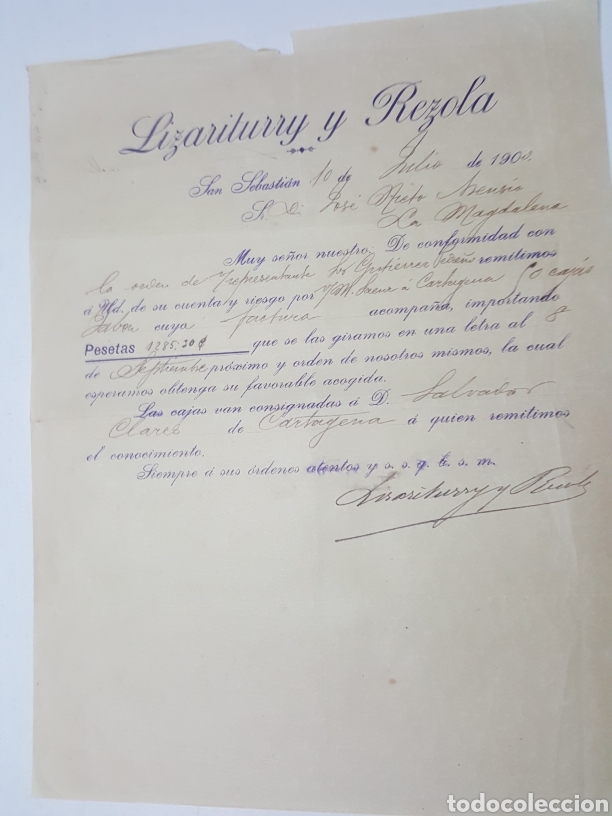 Lizariturry y Rezola
San Sebastián 10 de Julio de 190
S. D. José Nieto Asensio
La Magdalena
Muy señor nuestro: De conformidad con
la orden de representante Gutiérrez remitimos
á Vd. de su cuenta y riesgo por á Cartagena cajas
Jabon cuya factura acompaña, importando
Pesetas 1285,20 que se las giramos en una letra al 8
de Septiembre próximo y orden de nosotros mismos, la cual
esperamos obtenga su favorable acogida.
Las cajas van consignadas á D. Salvador
Clares de Cartagena á quien remitimos
el conocimiento.
Siempre á sus órdenes atentos y s. s. q. b. s. m.
Lizariturry y Rezola
todocoleccion